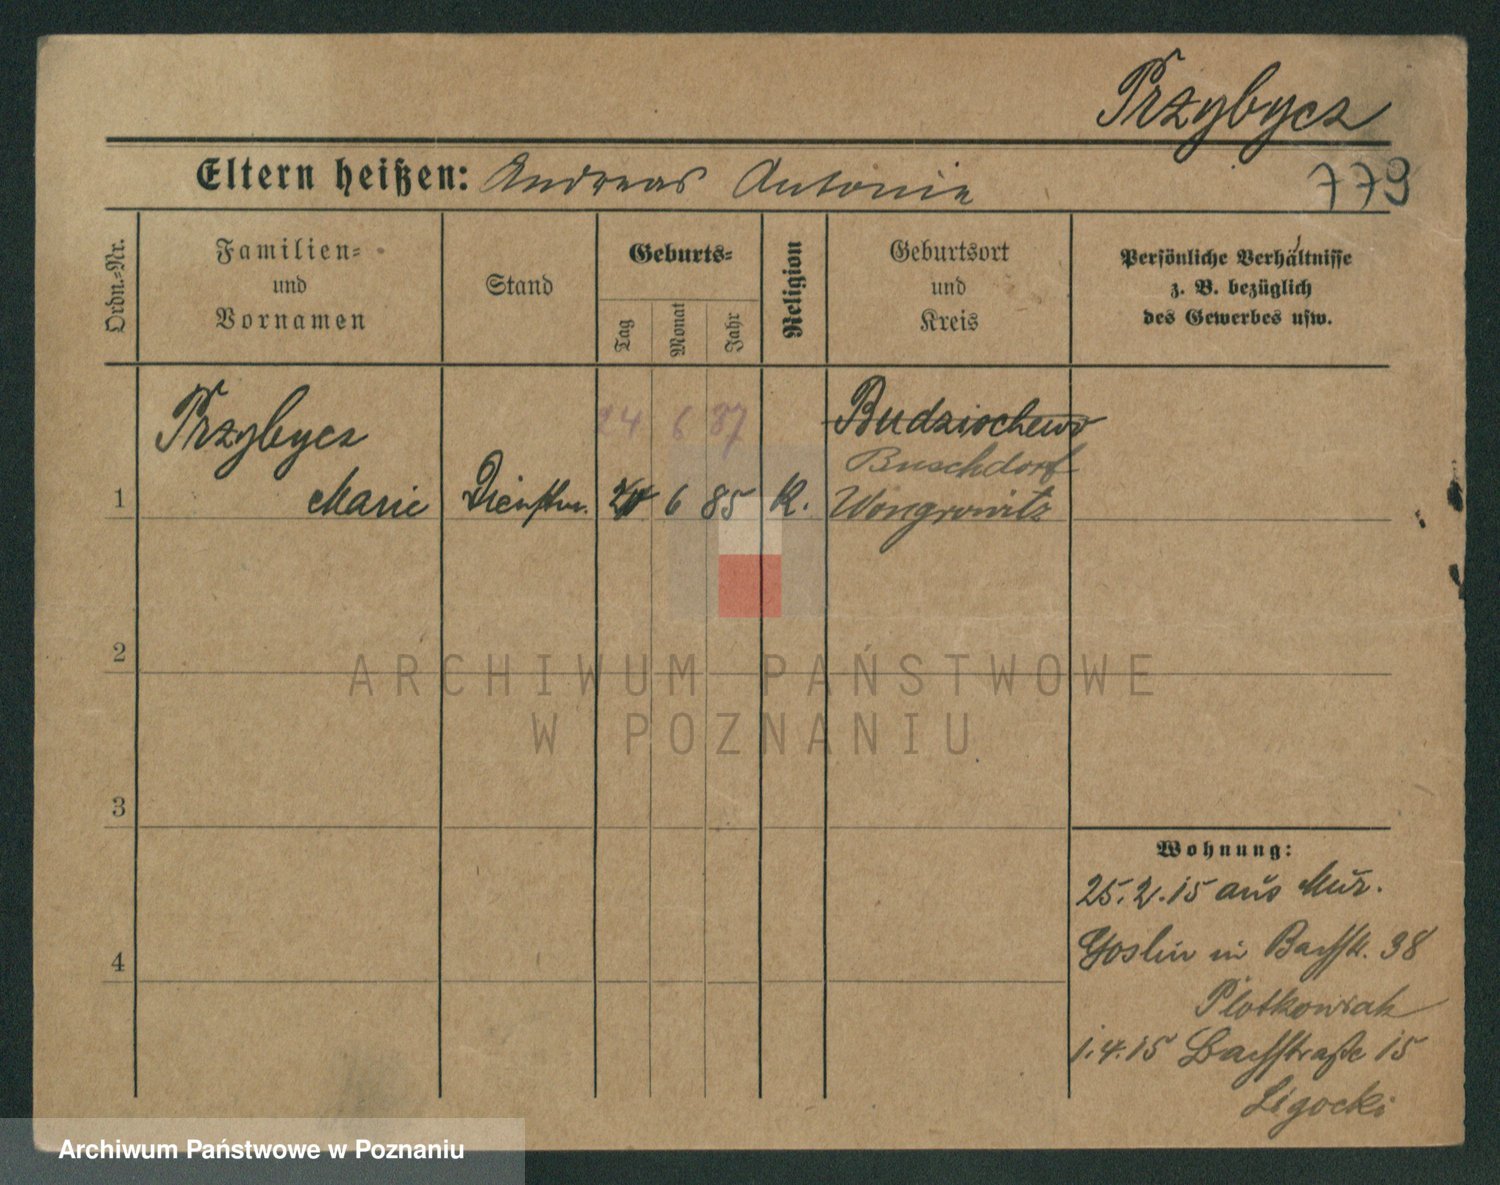 Przybycz
Eltern heißen: Andreas Antonie
779
Ordn.-Nr.
Familien-
und
Vornamen
Stand
Geburts-
Tag
Monat
Jahr
Religion
Geburtsort
und
Kreis
Persönliche Verhältnisse
z. B. bezüglich
des Gewerbes usw.
Przybycz
24 6 87
Budziochewo
Buschdorf
1 Marie Dienstm. 6 85 K. Wongrowitz
2
ARCHIWUM PAŃSTWOWE
W POZNANIU
3
Wohnung:
25.2.15 aus Mur.
4 Goslin in Bachstr. 38
Plotkowiak
1.4.15 Bachstraße 15
Ligocki
Archiwum Państwowe w Poznaniu